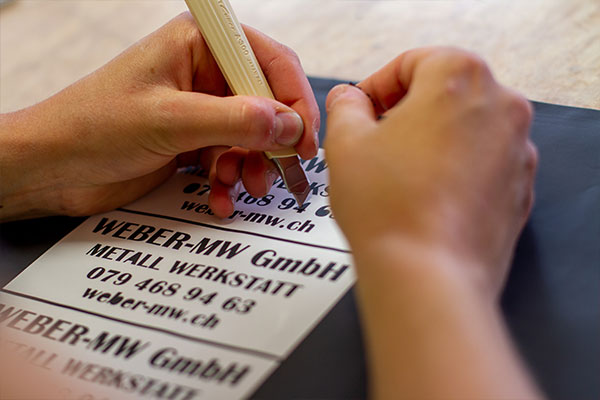 W
079 468 94 6
weber-mw.ch
WEBER-MW GmbH
METALL WERKSTATT
079 468 94 63
weber-mw.ch
WEBER-MW GmbH
METALL WERKSTATT